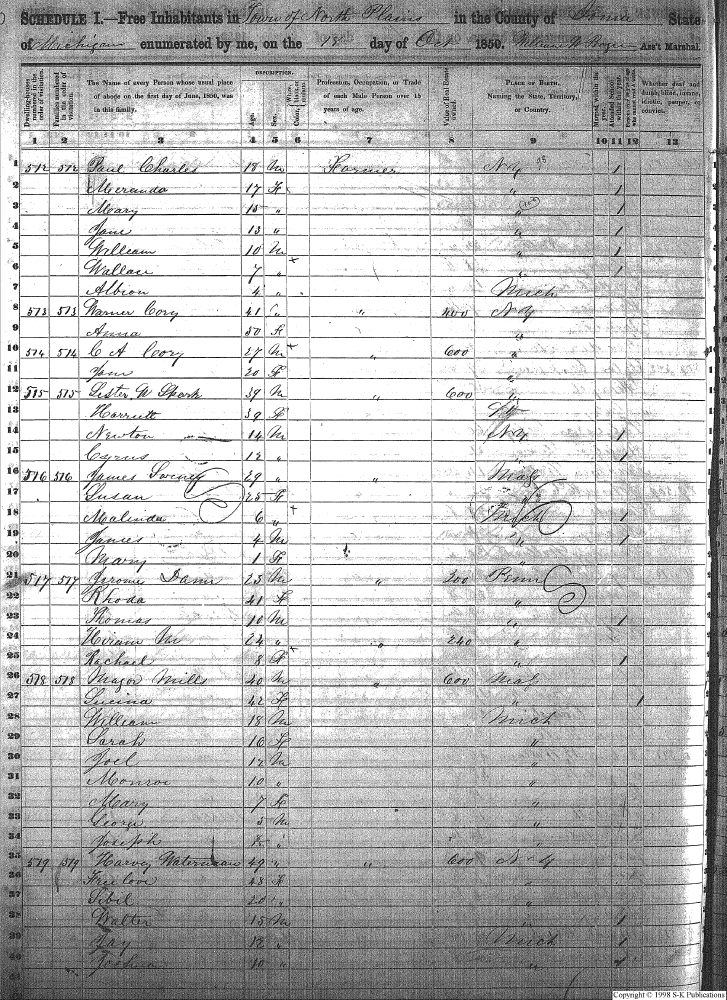 SCHEDULE I.—Free Inhabitants in Town of North Plains in the County of Ionia State
of Michigan enumerated by me, on the 18 day of Oct 1850. Ass't Marshal.
DESCRIPTION.
The Name of every Person whose usual place of abode on the first day of June, 1850, was in this family.
Age.
Sex.
Profession, Occupation, or Trade of each Male Person over 15 years of age.
Value of Real Estate owned.
PLACE OF BIRTH. Naming the State, Territory, or Country.
Whether deaf and dumb, blind, insane, idiotic, pauper, or convict.
1 2 3 4 5 6 7 8 9 10 11 12 13
1 512 512 Paul Charles 18 M Farmer N Y 1
2 Meranda 17 F " 1
3 Mary 15 " " 1
4 Jane 13 " " 1
5 William 10 M " 1
6 Wallace 7 " " 1
7 Albion 4 " Mich
8 513 513 Warner Cory 41 " " 400 N Y
9 Anna 50 F "
10 514 514 C A Cory 27 M " 600 "
11 Jane 20 F "
12 515 515 Lester W 39 M " 600 "
13 Harriett 39 F Vt
14 Newton 14 M N Y 1
15 Cyrus 12 " " 1
16 516 516 James Sweney 29 " " Mas
17 Susan 25 F "
18 Malinda 6 " Mich 1
19 James 4 M " 1
20 Mary 1 F "
21 517 517 Jerome 23 M " 200 Penn
22 Rhoda 41 F "
23 Thomas 10 M " 1
24 Hiram M 24 " " 240 "
25 Rachael 8 F " 1
26 518 518 Major Mills 40 M " 600 Mas
27 Lucina 42 F " 1
28 William 18 M Mich
29 Sarah 16 F "
30 Joel 12 M "
31 Monroe 10 " "
32 Mary 7 F "
33 George 5 M "
34 Joseph "
35 519 519 Harvey Waterman 49 " " 600 N Y
Freelove 48 F "
Sibil 20 " "
Walter 15 M " 1
Jay 12 " Mich 1
Joshua 10 " " 1
Copyright © 1998 S-K Publications